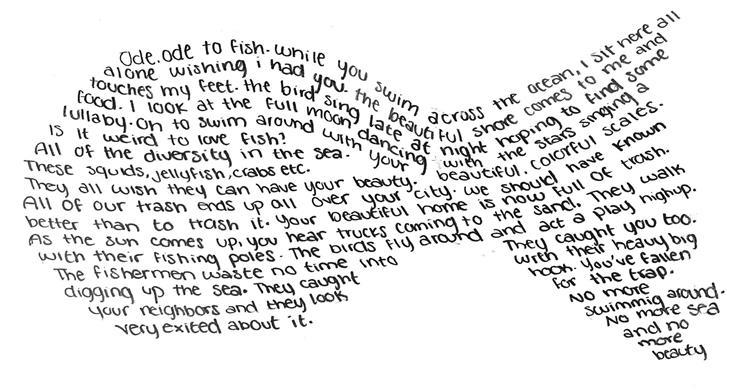 Ode, ode to fish. while you swim across the ocean, I sit here all
alone wishing i had you. the beautiful shore comes to me and
touches my feet. the bird sing late at night hoping to find some
food. I look at the full moon dancing with the stars singing a
lullaby. Oh to swim around with your beautiful, colorful scales.
Is it weird to love fish?
All of the diversity in the sea.
These squids, jellyfish, crabs etc.
They all wish they can have your beauty.
All of our trash ends up all over your city. we should have known
better than to trash it. Your beautiful home is now full of trash.
As the sun comes up, you hear trucks coming to the sand. They walk
with their fishing poles. The birds fly around and act a play nighup.
The fishermen waste no time into
digging up the sea. They caught
your neighbors and they look
very exited about it.
They caught you too.
with their heavy big
hook. you've fallen
for the trap.
No more
swimmig around.
No more sea
and no
more
beauty